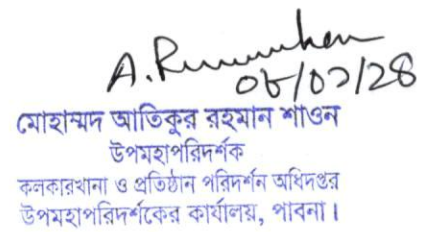 A. Rahman
০৮/০১/২৪
মোহাম্মদ আতিকুর রহমান শাওন
উপমহাপরিদর্শক
কলকারখানা ও প্রতিষ্ঠান পরিদর্শন অধিদপ্তর
উপমহাপরিদর্শকের কার্যালয়, পাবনা।